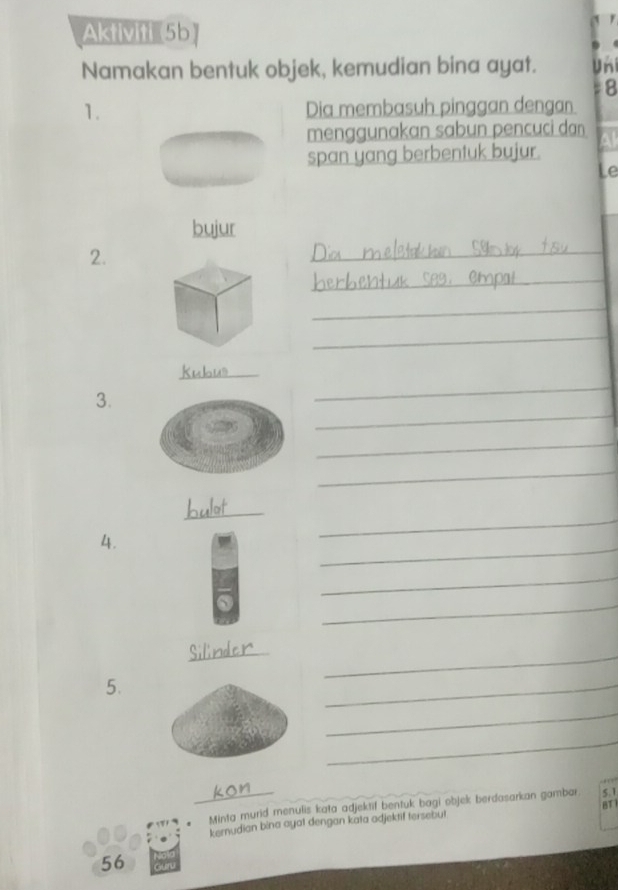 Aktiviti 5b
Namakan bentuk objek, kemudian bina ayat.
1.
Dia membasuh pinggan dengan
menggunakan sabun pencuci dan
span yang berbentuk bujur.
bujur
2.
Dia meletakkan tisu
berbentuk segi empat
kubus
3.
bulat
4.
Silinder
5.
kon
Minta murid menulis kata adjektif bentuk bagi objek berdasarkan gambar,
kemudian bina ayat dengan kata adjektif tersebut.
Nota
Guru
56
Uni
8
Le
5.1